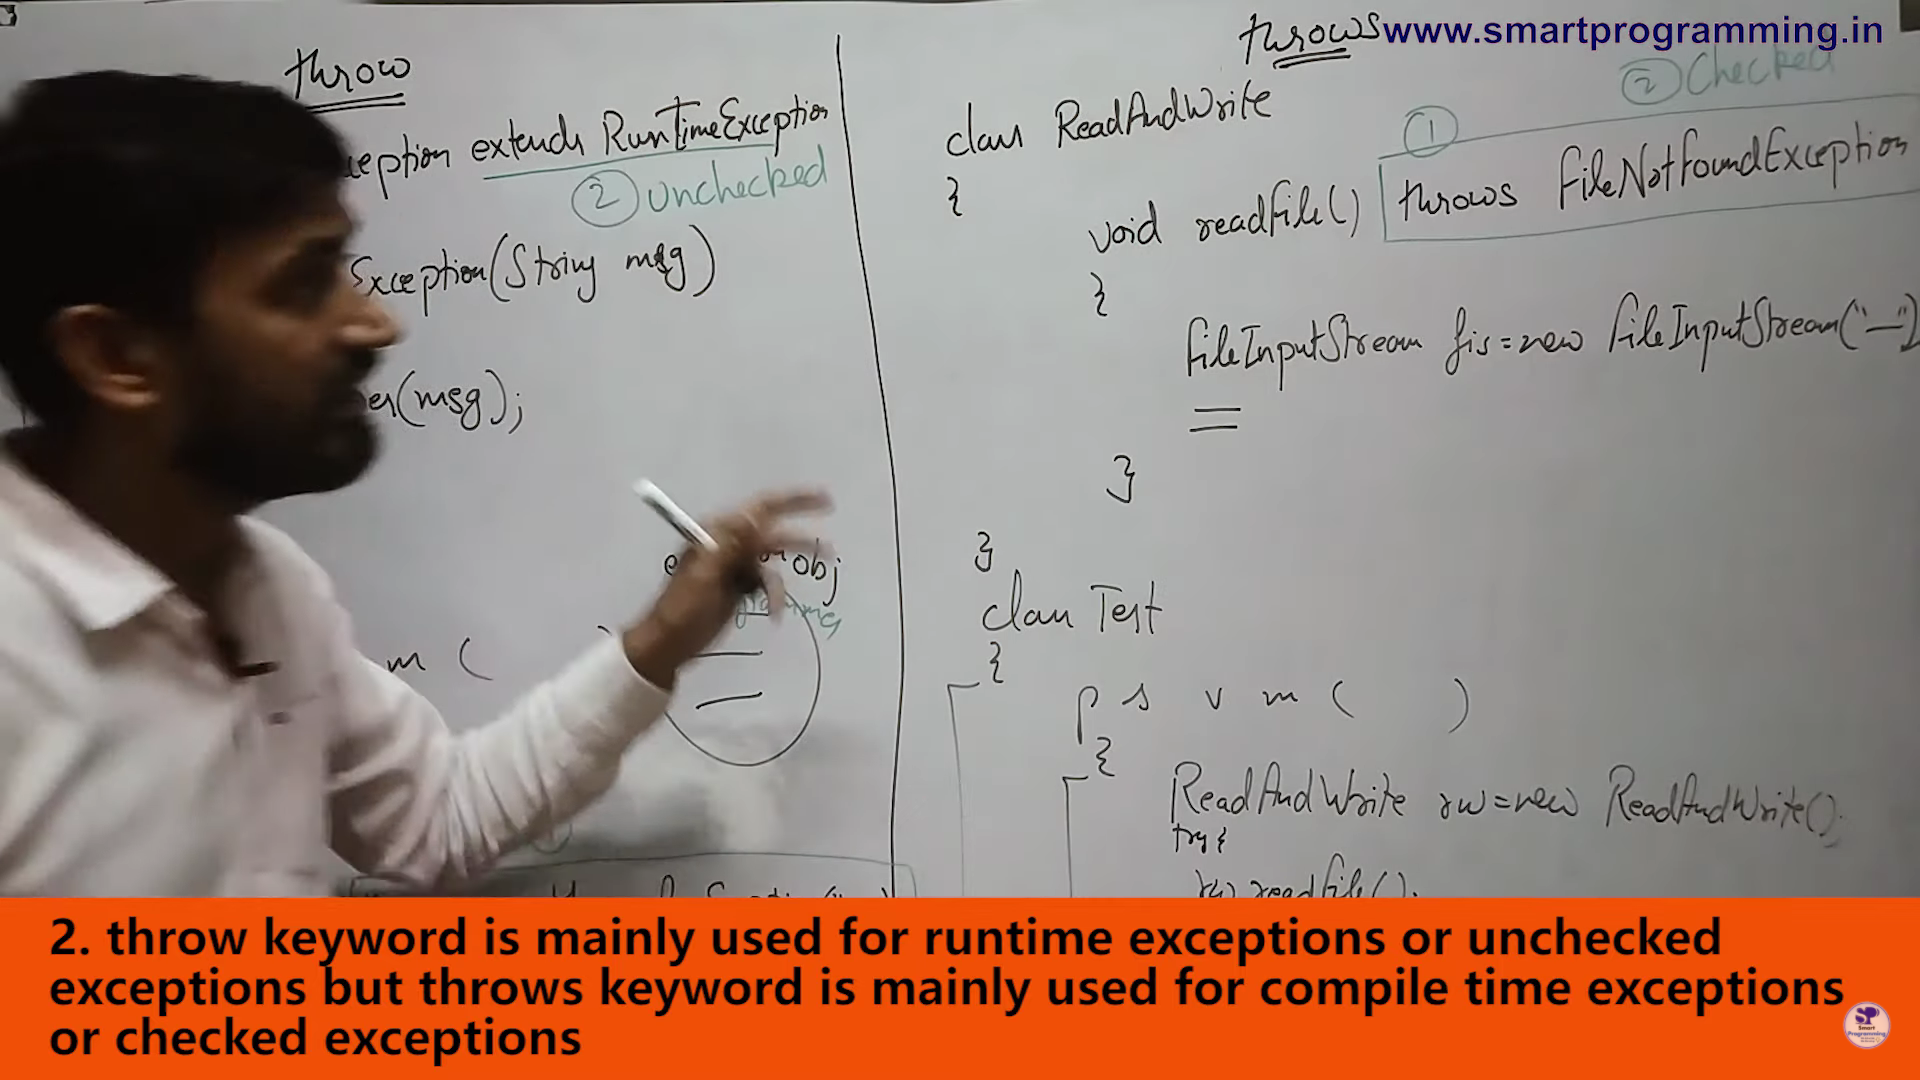 throw
ception extends RunTimeException
② unchecked
Exception(String msg)
er(msg);
obj
m (
throws
www.smartprogramming.in
② Checked
class ReadAndWrite
①
{
void readfile() throws FileNotFoundException
{
FileInputStream fis=new FileInputStream("—")
}
}
class Test
{
p s v m ( )
{
ReadAndWrite rw=new ReadAndWrite();
try{
rw.readfile();
2. throw keyword is mainly used for runtime exceptions or unchecked
exceptions but throws keyword is mainly used for compile time exceptions
or checked exceptions
SP
Smart
Programming